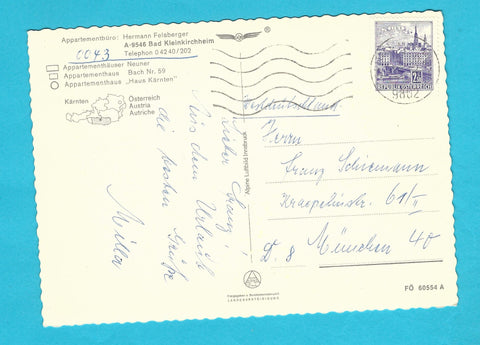 Appartementbüro: Hermann Felsberger
A-9546 Bad Kleinkirchheim
Telephon 0 42 40 / 202
0043
Appartementhäuser Neuner
Appartementhaus Bach Nr. 59
Appartementhaus „Haus Kärnten"
Kärnten
Österreich
Austria
Autriche
Lieber Franz,
Aus dem Urlaub
die besten Grüße
Milla
Alpine Luftbild Innsbruck
®
2.50
REPUBLIK ÖSTERREICH
9862
Westdeutschland
Herrn
Franz Schiemann
Kraepelinstr. 61/II
D. 8 München 40
FÖ 60554 A